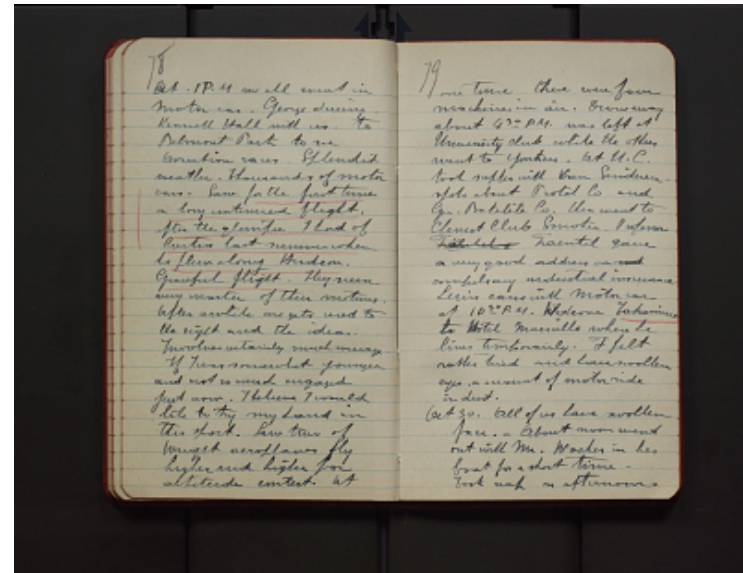 78
Oct. 1 P.M we all went in
motor car. George driving.
Kennell Hall with us. to
Belmont Park to see
Aviation races. Splendid
weather. Thousands of motor
cars. Saw for the first time
a long continued flight.
after the glimpse I had of
Curtiss last summer when
he flew along Hudson.
Graceful flight. They seem
very master of their motions.
After awhile one gets used to
the sight and the idea.
Involves certainly much courage
If I was somewhat younger
and not so much engaged
just now. I believe I would
like to try my hand in
this sport. Saw two of
Wright aeroplanes fly
higher and higher for
altitude contest. At
79
one time there were four
machines in air. Drove away
about 4 P.M. was left at
University club while the others
went to Yonkers. At U.C.
took supper with
spoke about and
Co. Then went to
Chemist Club Smoker. Professor
gave
a very good address on
compulsory industrial insurance
cars with motor car
at 10 P.M. Takamine
to Hotel where he
lives temporarily. I felt
rather tired and have swollen
eyes, account of motor ride
in dust.
Oct 30. All of us have swollen
face. - About noon went
out with Mr. in his
boat for a short time -
Took nap in afternoon.